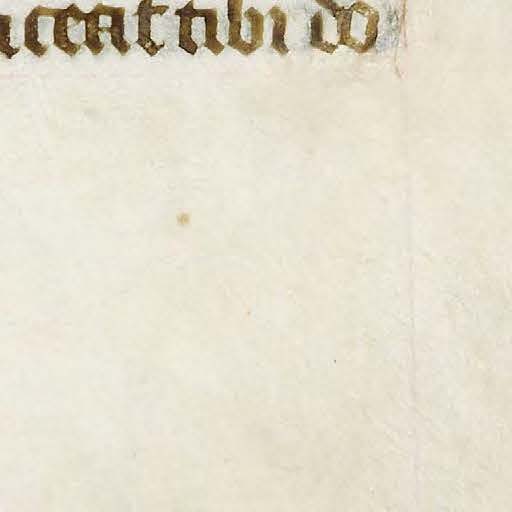 aceat tibi do